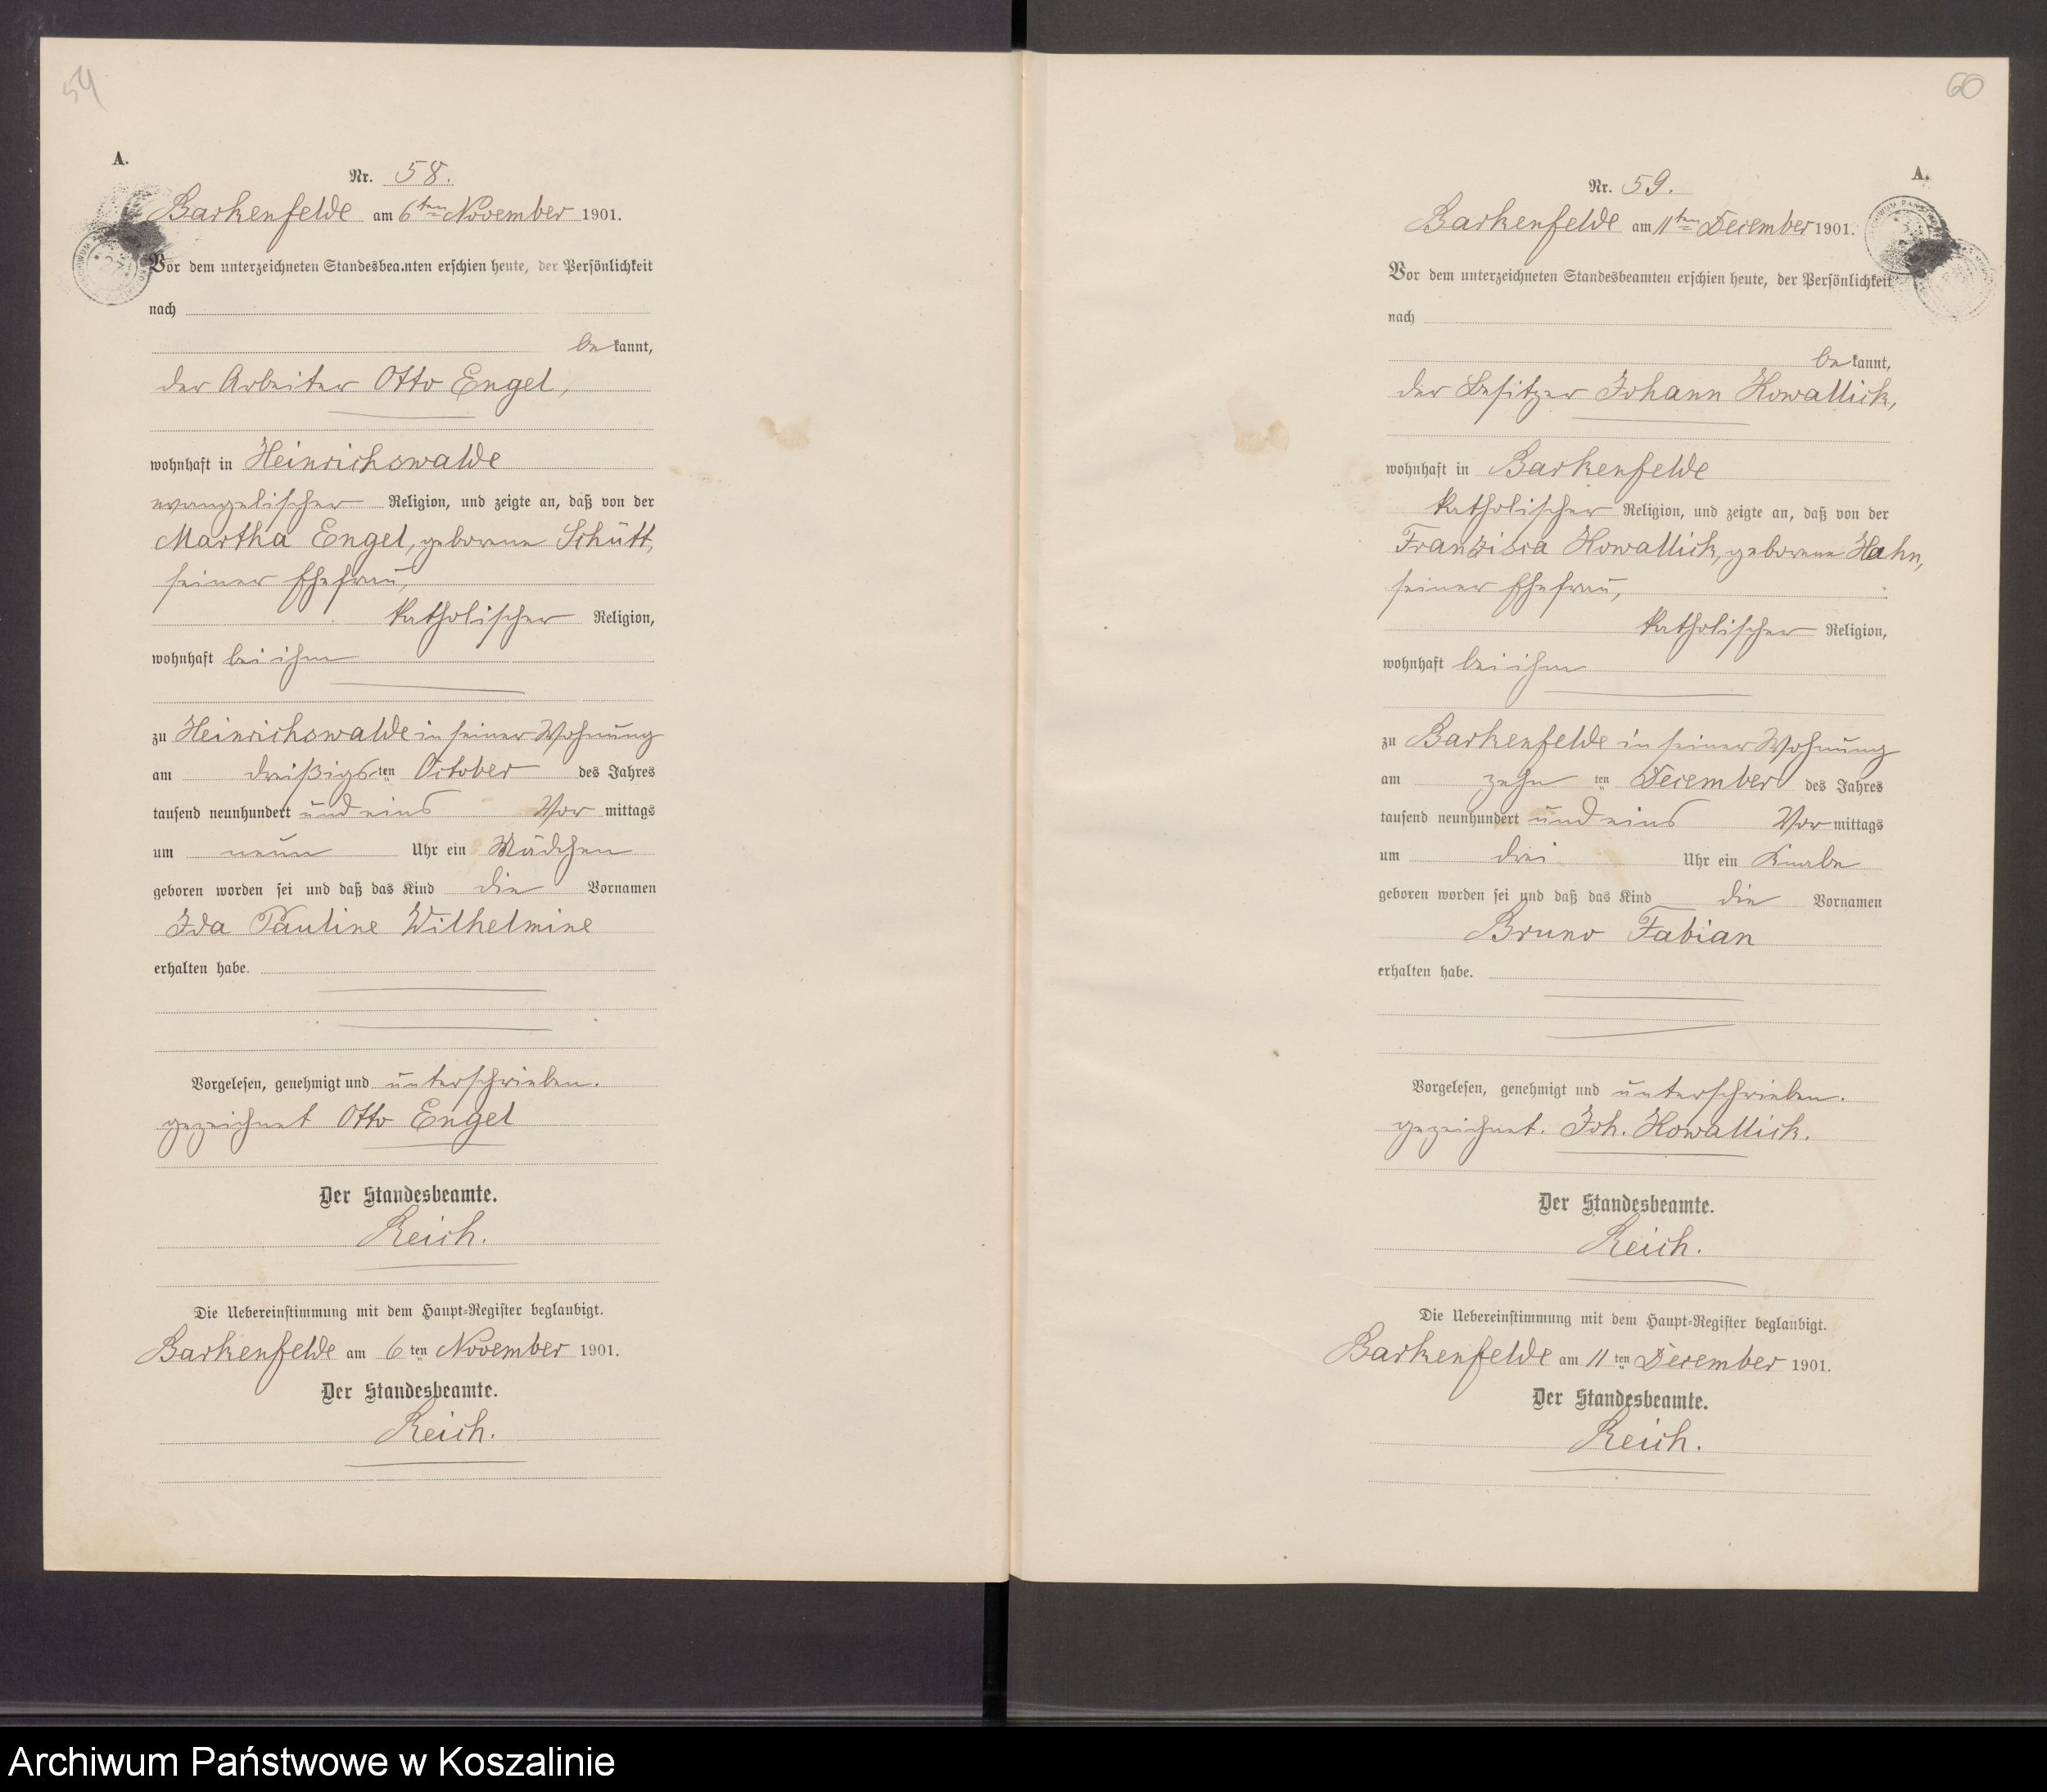 59
A.
Nr. 58.
Barkenfelde am 6ten November 1901.
Vor dem unterzeichneten Standesbeamten erschien heute, der Persönlichkeit
nach
bekannt,
der Arbeiter Otto Engel,
wohnhaft in Heinrichswalde
evangelischer Religion, und zeigte an, daß von der
Martha Engel, geborene Schütt,
seiner Ehefrau,
katholischer Religion,
wohnhaft bei ihm
zu Heinrichswalde in seiner Wohnung
am dreißigsten October des Jahres
tausend neunhundert und eins Vormittags
um neun Uhr ein Mädchen
geboren worden sei und daß das Kind die Vornamen
Ida Pauline Wilhelmine
erhalten habe.
Vorgelesen, genehmigt und unterschrieben.
gezeichnet Otto Engel
Der Standesbeamte.
Reich.
Die Uebereinstimmung mit dem Haupt-Register beglaubigt.
Barkenfelde am 6ten November 1901.
Der Standesbeamte.
Reich.
60
A.
Nr. 59.
Barkenfelde am 11ten December 1901.
Vor dem unterzeichneten Standesbeamten erschien heute, der Persönlichkeit
nach
bekannt,
der Besitzer Johann Kowallick,
wohnhaft in Barkenfelde
katholischer Religion, und zeigte an, daß von der
Franzisca Kowallick, geborene Hahn,
seiner Ehefrau,
katholischer Religion,
wohnhaft bei ihm
zu Barkenfelde in seiner Wohnung
am zehnten December des Jahres
tausend neunhundert und eins Vormittags
um drei Uhr ein Knabe
geboren worden sei und daß das Kind die Vornamen
Bruno Fabian
erhalten habe.
Vorgelesen, genehmigt und unterschrieben.
gezeichnet. Joh. Kowallick.
Der Standesbeamte.
Reich.
Die Uebereinstimmung mit dem Haupt-Register beglaubigt.
Barkenfelde am 11ten December 1901.
Der Standesbeamte.
Reich.
Archiwum Państwowe w Koszalinie